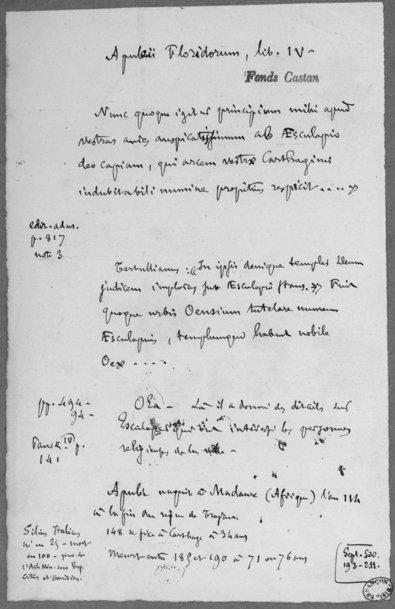 Apuleii Floridorum, lib. IV -
Fonds Castan
Nunc quoque igitur principium mihi apud
vestras aures auspicatissimum ab Æsculapio
deo capiam, qui arcem vestræ Carthaginis
indubitabili numine propitius respicit .... »
edit. ad us.
p. 817
note 3
Tertullianus : « In ipsis denique templis Deum
judicem imploras sub Æsculapio stans. » Fuit
quoque urbis Oensium tutelare numen
Æsculapius, templumque habuit nobile
Oex - - - -
pp. 494 -
94 -
Panck. IV p.
141
OEa - Là il a donné des détails sur
Esculape qui intéresse les personnes
religieuses de la ville -
Apulée naquit à Madaure (Afrique) l'an 114
à la fin du règne de Trajan
148 se fixe à Carthage à 34 ans
Meurt entre 185 et 190 à 71 ou 76 ans
Silius Italicus
né en 25 - mort
en 100 -
Sept. Sev.
193-211.